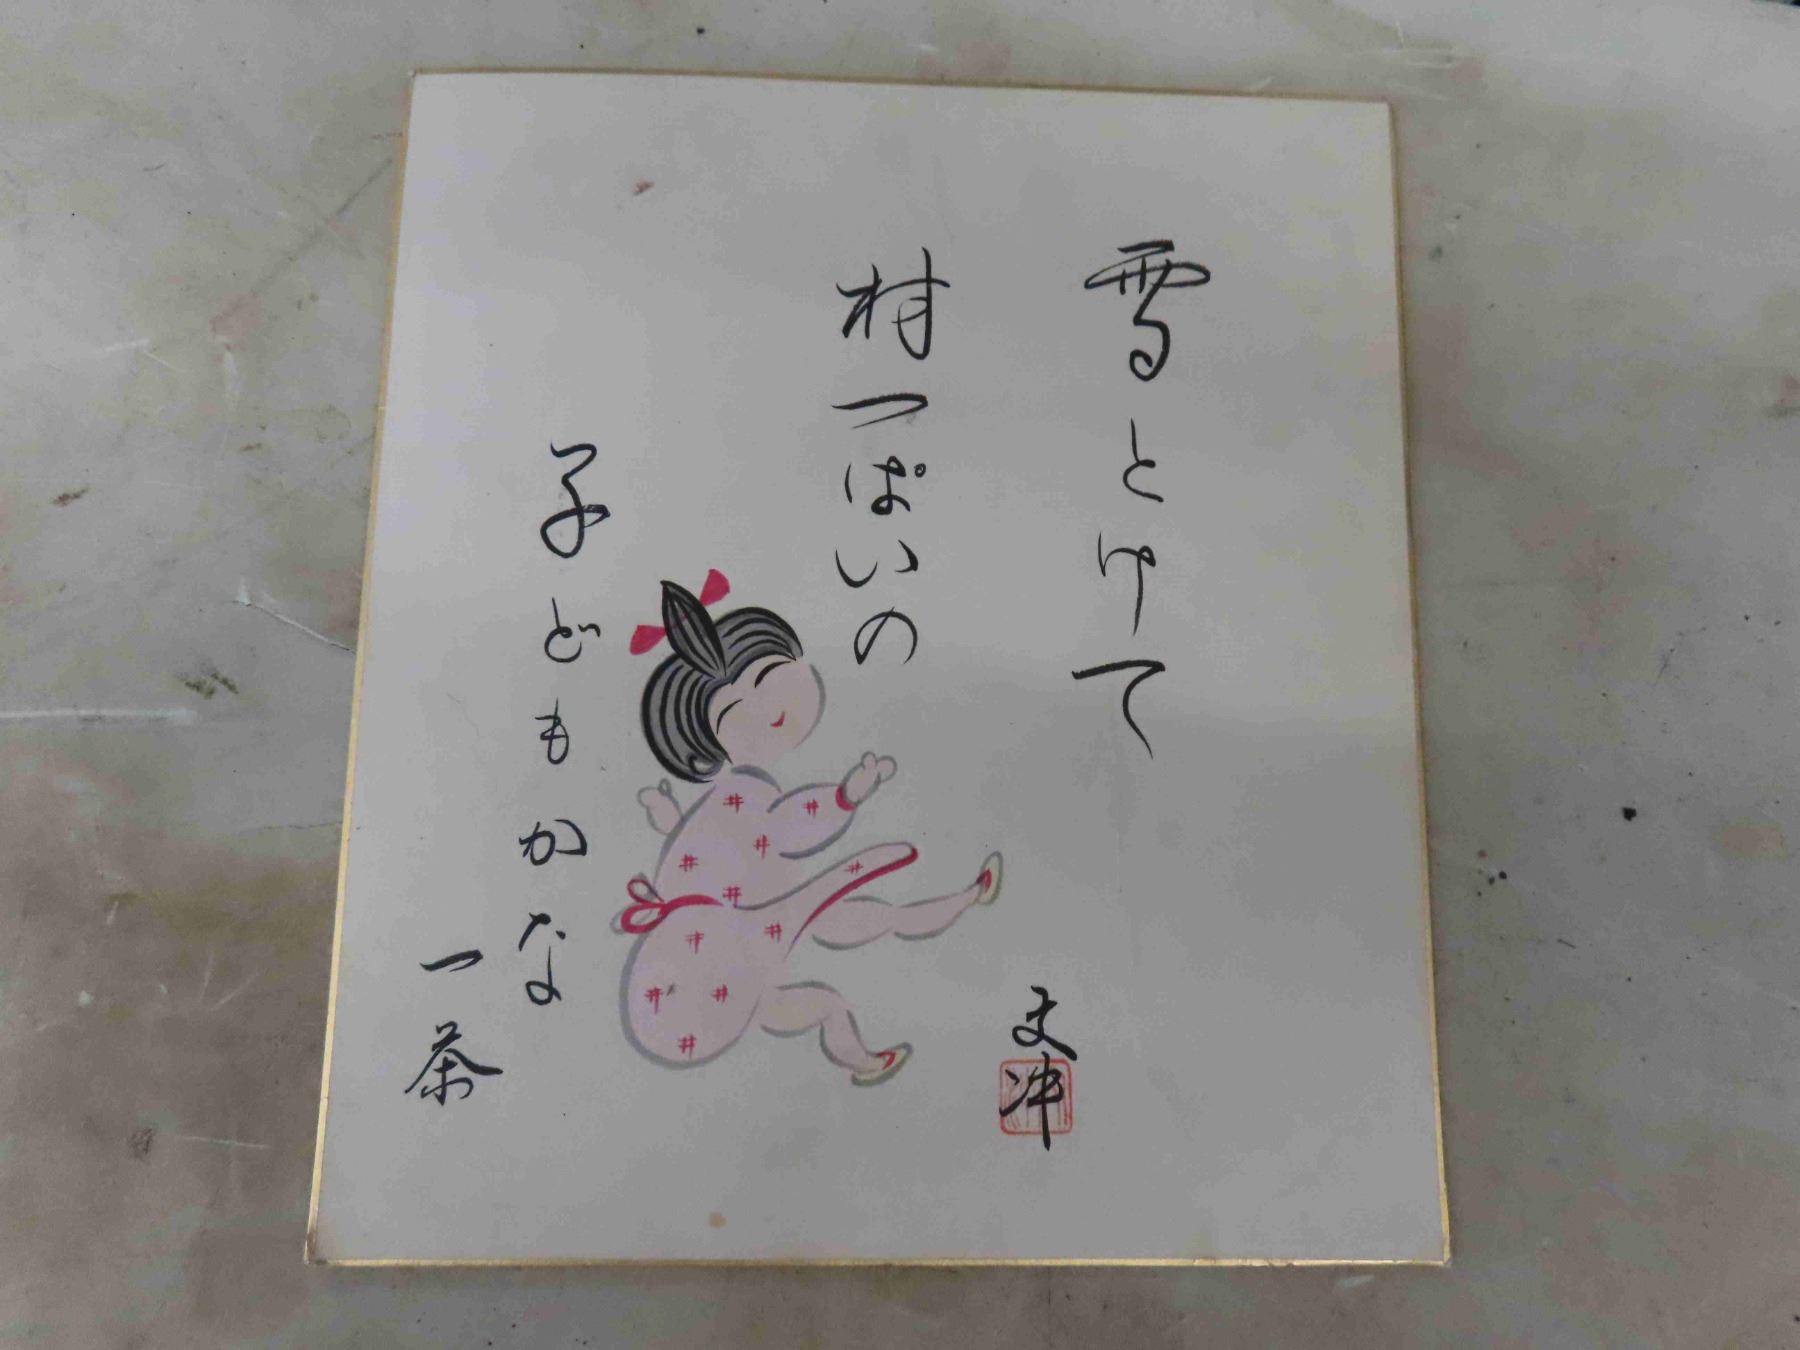 雪とけて
村一ぱいの
子どもかな
一茶
文冲